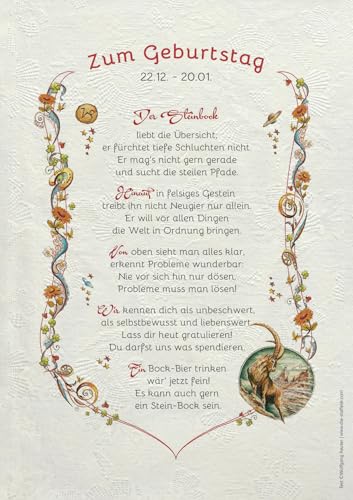 Zum Geburtstag
22.12. - 20.01.
Der Steinbock
liebt die Übersicht,
er fürchtet tiefe Schluchten nicht.
Er mag's nicht gern gerade
und sucht die steilen Pfade.
Hinauf in felsiges Gestein
treibt ihn nicht Neugier nur allein.
Er will vor allen Dingen
die Welt in Ordnung bringen.
Von oben sieht man alles klar,
erkennt Probleme wunderbar:
Nie vor sich hin nur dösen,
Probleme muss man lösen!
Wir kennen dich als unbeschwert,
als selbstbewusst und liebenswert.
Lass dir heut gratulieren!
Du darfst uns was spendieren.
Ein Bock-Bier trinken
wär' jetzt fein!
Es kann auch gern
ein Stein-Bock sein.